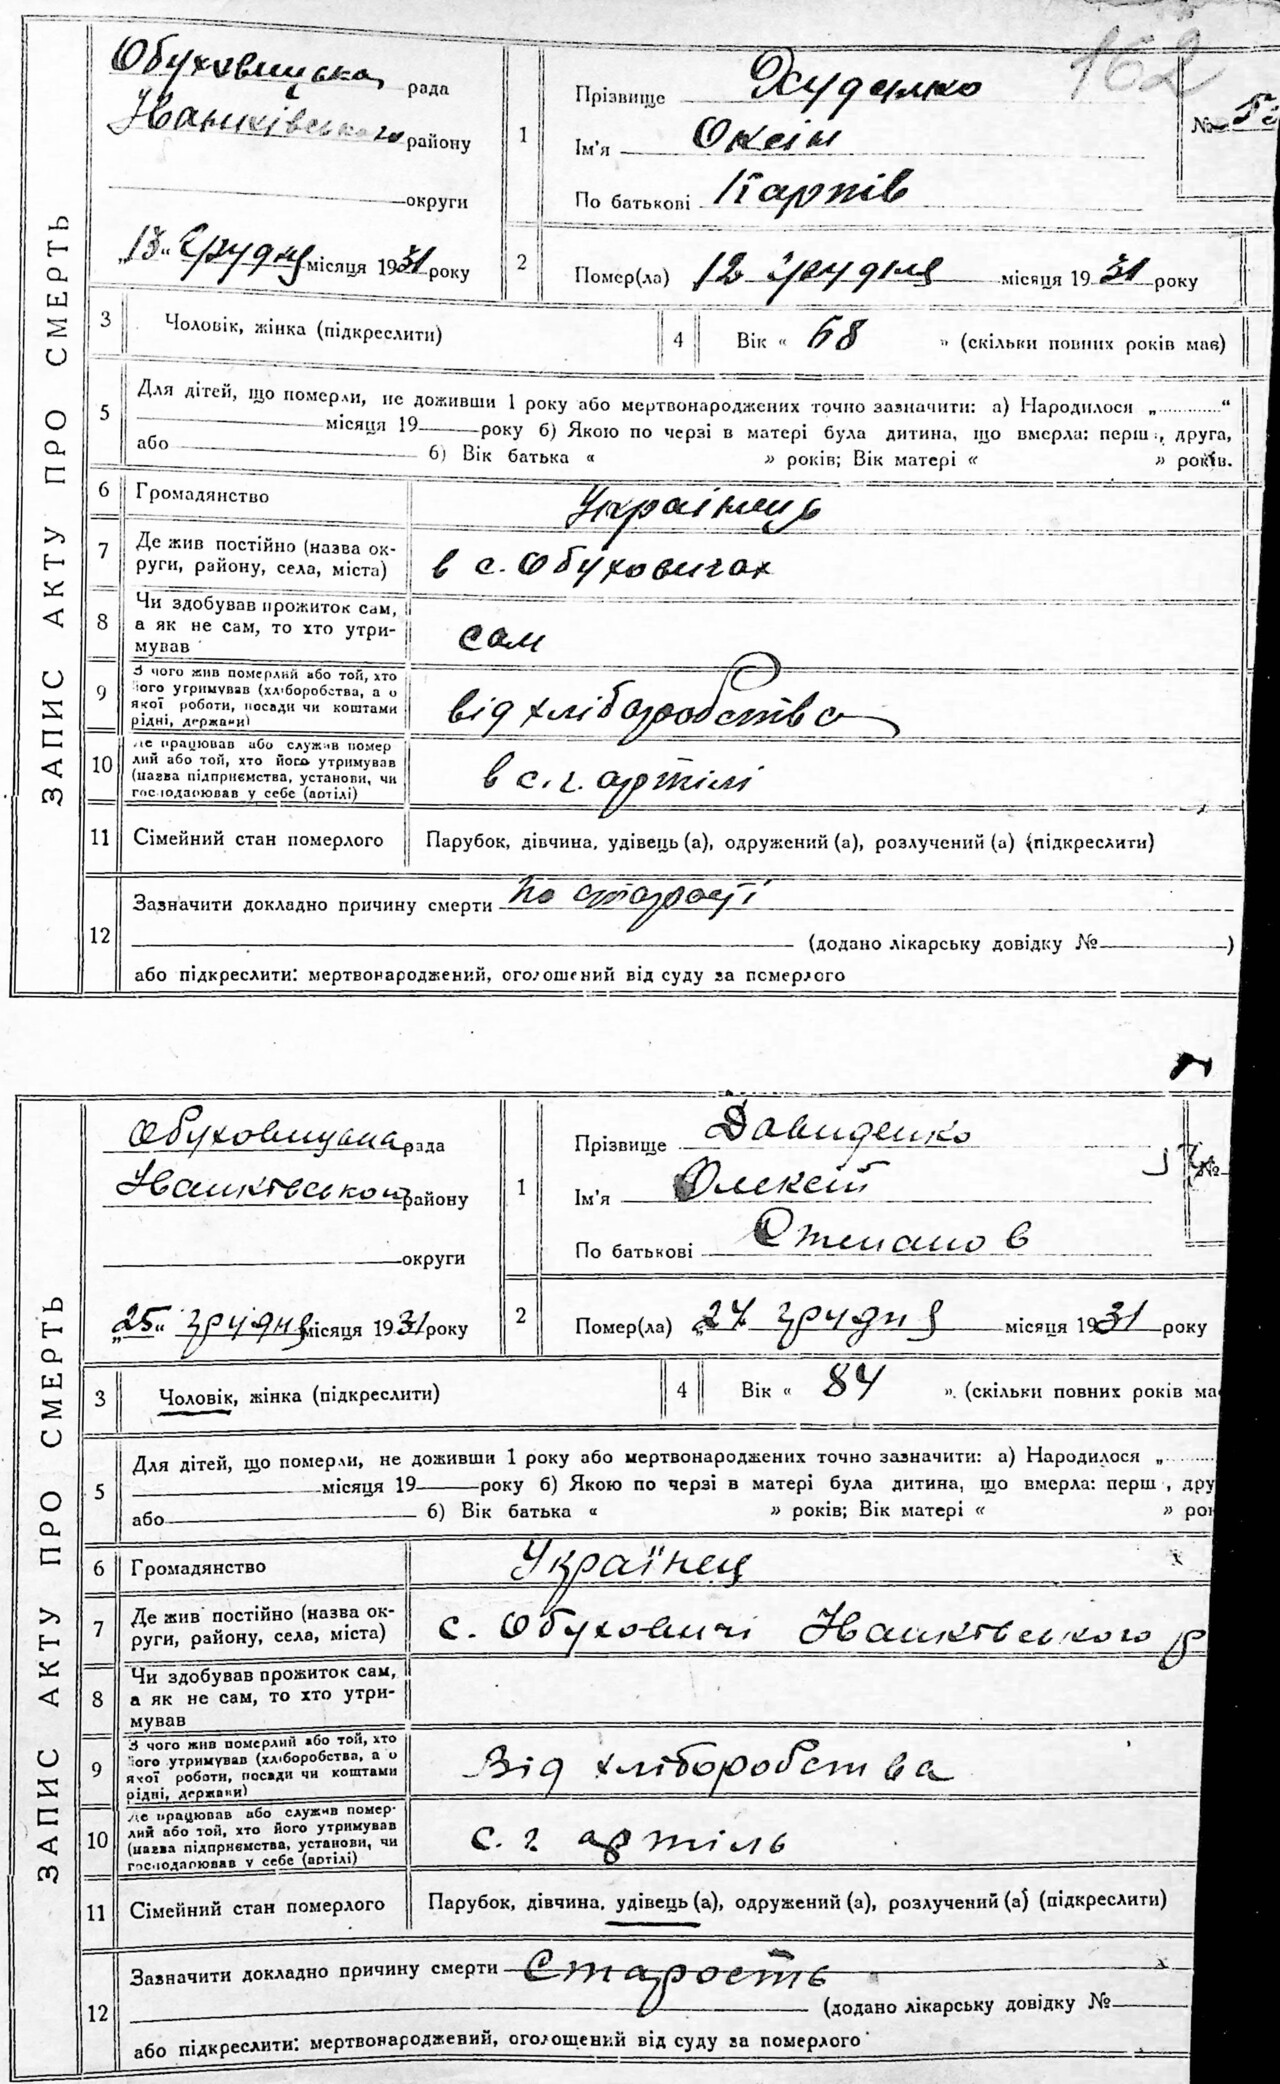 162
ЗАПИС АКТУ ПРО СМЕРТЬ
Обуховицька рада
Іванківського району
округи
"13" грудня місяця 1931 року
1
Прізвище
Ім'я
По батькові Карпів
№
2
Помер(ла) 12 грудня місяця 1931 року
3 Чоловік, жінка (підкреслити)
4 Вік « 68 » (скільки повних років мав)
5 Для дітей, що померли, не доживши 1 року або мертвонароджених точно зазначити: а) Народилося „ “
місяця 19 року б) Якою по черзі в матері була дитина, що вмерла: перш , друга,
або б) Вік батька « » років; Вік матері « » років.
6 Громадянство Українець
7 Де жив постійно (назва ок-
руги, району, села, міста) в с. Обуховичах
8 Чи здобував прожиток сам,
а як не сам, то хто утри-
мував сам
9 З чого жив померлий або той, хто
його утримував (хліборобства, а о
якої роботи, посади чи коштами
рідні, держави) від хліборобства
10 Де працював або служив помер
лий або той, хто його утримував
(назва підприємства, установи, чи
господарював у себе (артілі) в с. г. артілі
11 Сімейний стан померлого Парубок, дівчина, удівець (а), одружений (а), розлучений (а) (підкреслити)
12 Зазначити докладно причину смерти по старості
(додано лікарську довідку № )
або підкреслити: мертвонароджений, оголошений від суду за померлого
ЗАПИС АКТУ ПРО СМЕРТЬ
Обуховицька рада
Іванківського району
округи
„25“ грудня місяця 1931 року
1
Прізвище Давиденко
Ім'я Олексій
По батькові Степанов
№
2
Помер(ла) „24 грудня місяця 1931 року
3 Чоловік, жінка (підкреслити)
4 Вік « 84 » (скільки повних років ма
5 Для дітей, що померли, не доживши 1 року або мертвонароджених точно зазначити: а) Народилося „
місяця 19 року б) Якою по черзі в матері була дитина, що вмерла: перш , дру
або б) Вік батька « » років; Вік матері « » рок
6 Громадянство Українец
7 Де жив постійно (назва ок-
руги, району, села, міста) с. Обуховичі Іванківського р
8 Чи здобував прожиток сам,
а як не сам, то хто утри-
мував
9 З чого жив померлий або той, хто
його утримував (хліборобства, а о
якої роботи, посади чи коштами
рідні, держави) Від хліборобства
10 Де працював або служив помер-
лий або той, хто його утримував
(назва підприємства, установи, чи
господарював у себе (артілі) с. г артіль
11 Сімейний стан померлого Парубок, дівчина, удівець (а), одружений (а), розлучений (а) (підкреслити)
12 Зазначити докладно причину смерти Старость
(додано лікарську довідку №
або підкреслити: мертвонароджений, оголошений від суду за померлого